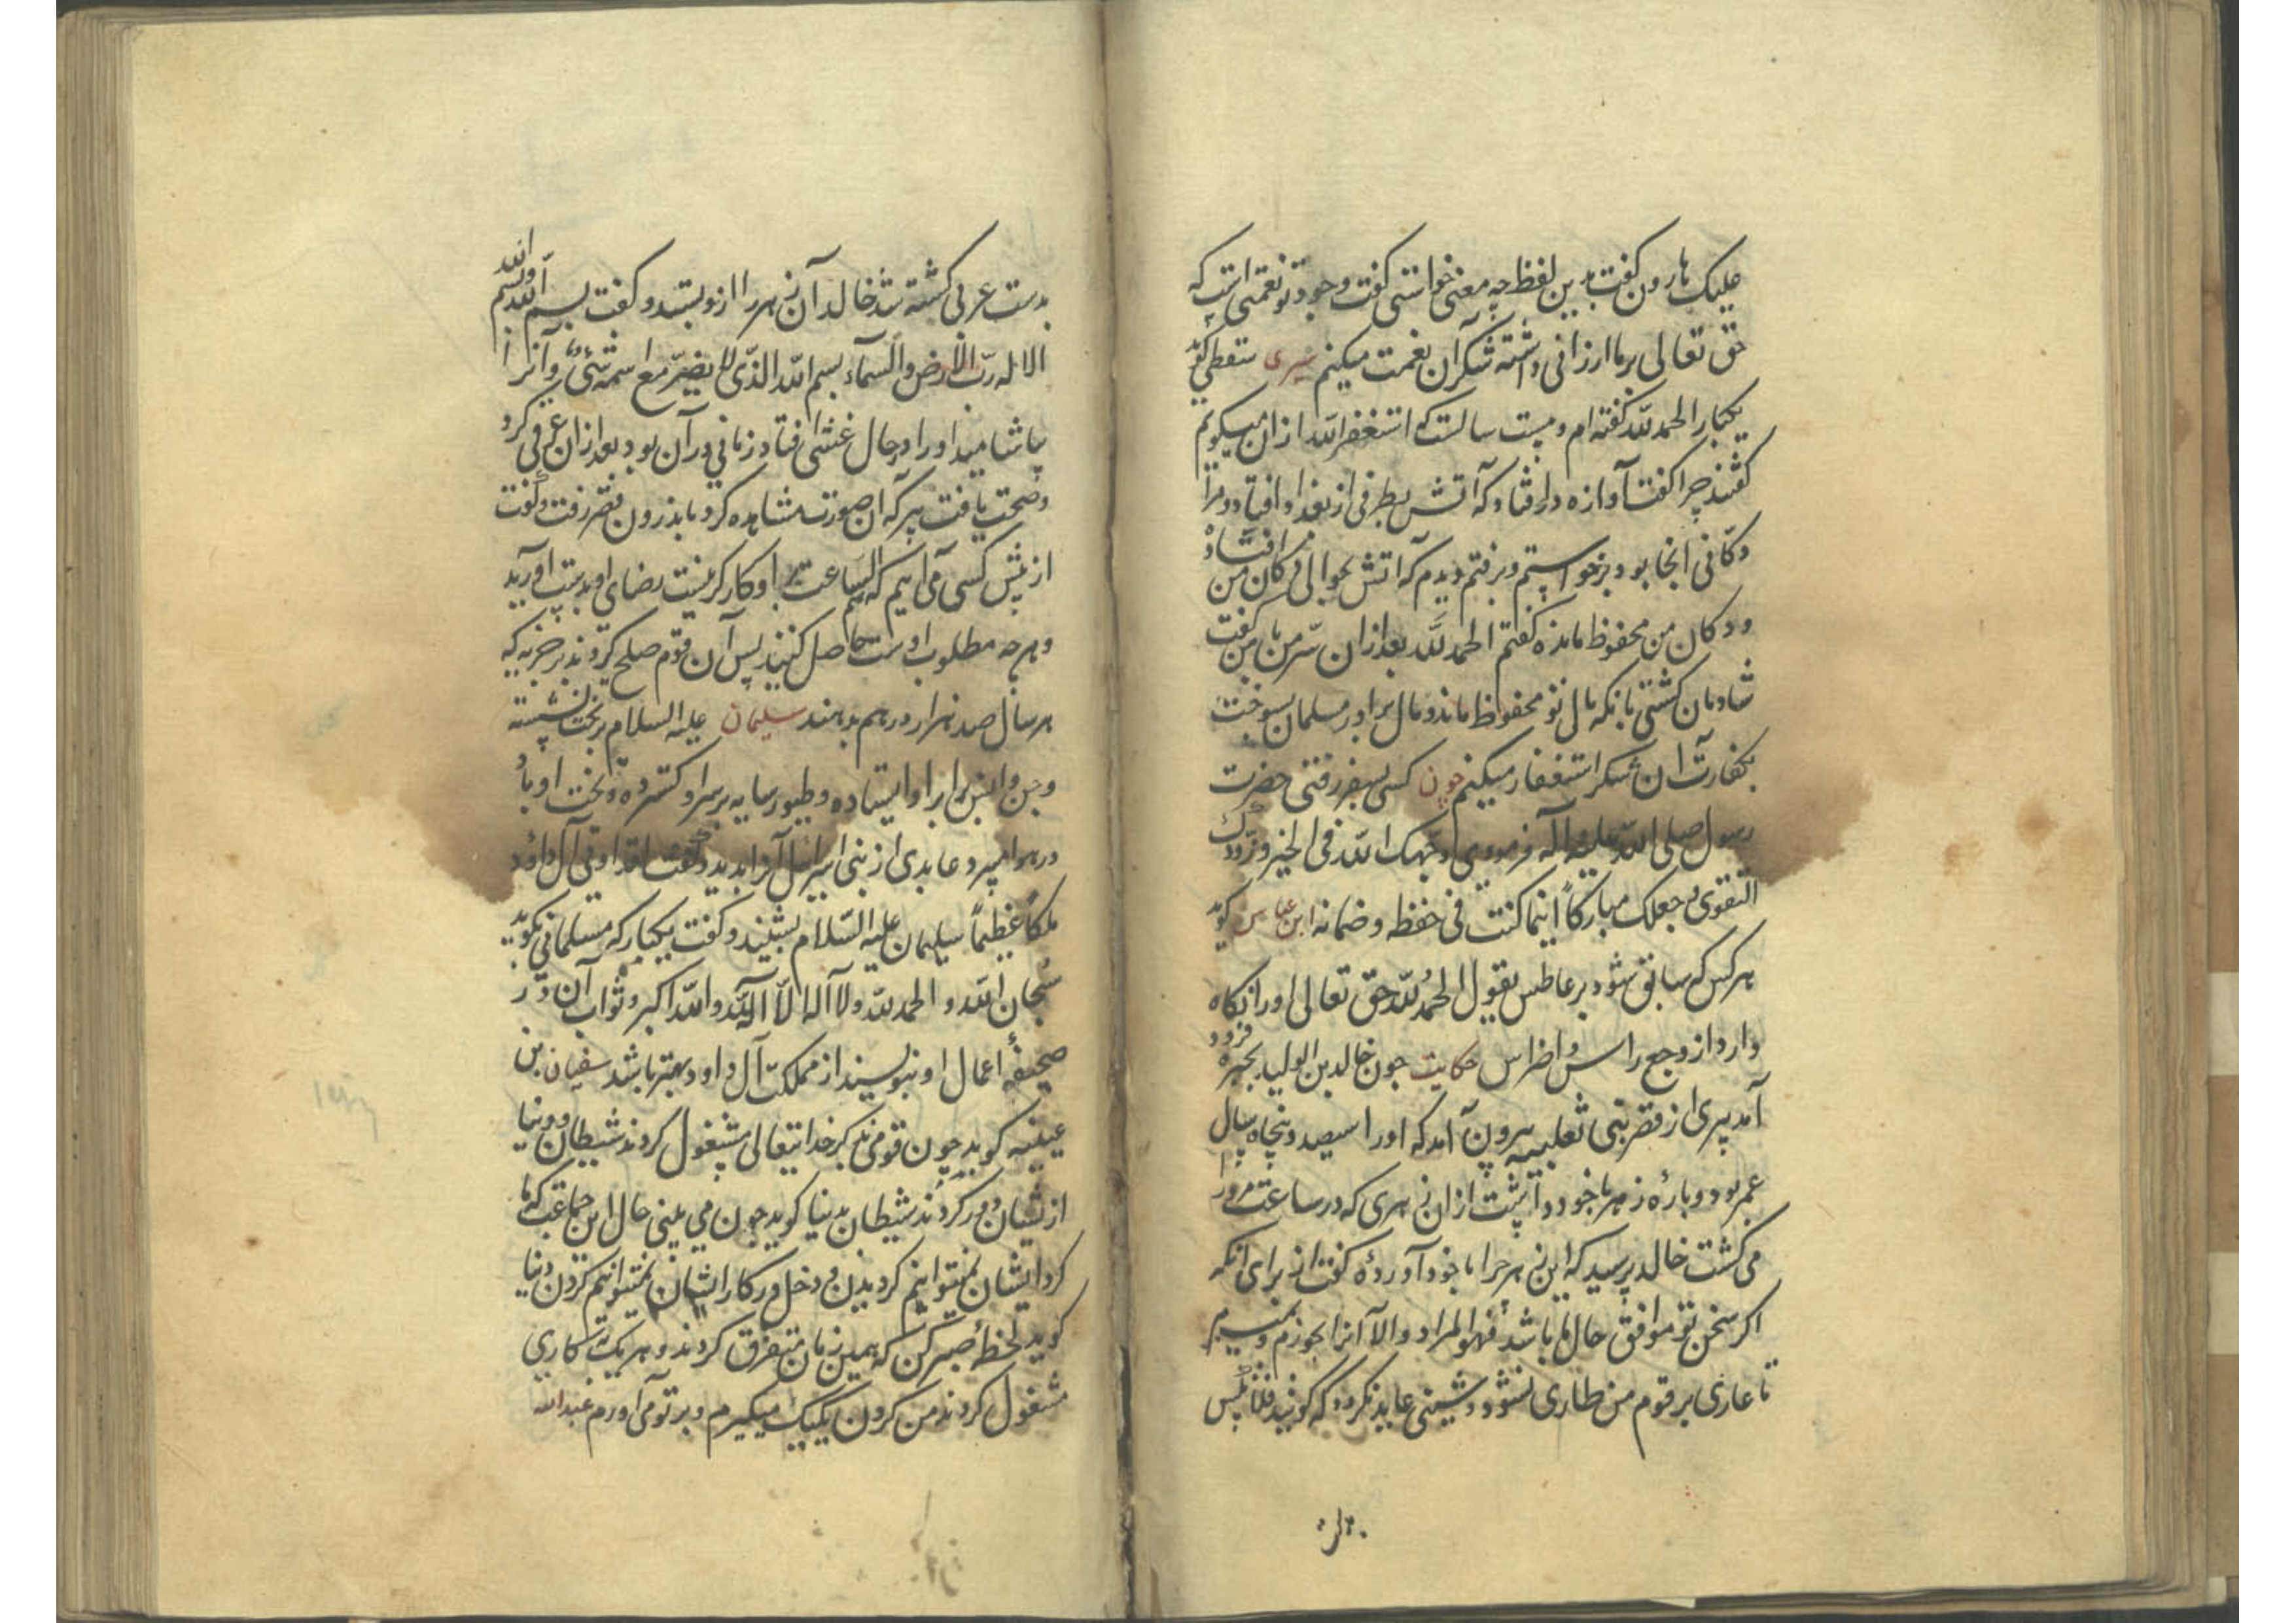 علیک هارون کفت بدین لفظ چه معنی خواستی کفت وجود تو نعمتی است که
حق تعالی بر ما ارزانی داشته شکر آن نعمت میکنم سری سقطی کوید
یکبار الحمد لله کفته ام و بیست سالست که استغفر الله از ان میکویم
کفتند چرا کفت آوازه در افتاد که آتش بطرفی از بغداد افتاد و مرا
دکانی آنجا بود برخواستم و برفتم دیدم که اتش بحوالی دکان من افتاده
و دکان من محفوظ مانده کفتم الحمد لله بعد از ان سر من با من کفت
شادمان کشتی بانکه مال تو محفوظ ماند و مال برادر مسلمان بسوخت
بکفارت ان شکر استغفار میکنم چون کسی بسفر رفتی حضرت
رسول صلی الله علیه و آله فرمودی وجهک الله فی الخیر و زودک
التقوی و جعلک مبارکاً اینما کنت فی حفظه و ضمانه ابن عباس کوید
هر کس که سابق شود بر عاطس بقول الحمد لله حق تعالی او را نکاه
دارد از وجع راس و اضراس حکایت چون خالد بن الولید بحیره فرود
آمد پیری از قصر بنی ثعلبیه بیرون آمد که او را سیصد و پنجاه سال
عمر بود و پارهٔ زهر با خود داشت از ان زهری که در ساعت مرد را
می کشت خالد پرسید که این زهر چرا با خود آوردهٔ کفت از برای انکه
اکر سخن تو موافق حال ما باشد فهو المراد و الا آنرا بخورم و بمیرم
تا عاری بر قوم من طاری نشود و شینی عاید نکردد که کویند فلان پس
بدست عربی کشته شد خالد آن زهر را ازو بستد و کفت بسم الله و بالله
الا له رب الارض و السماء بسم الله الذی لا یضر مع اسمه شئ و آنرا
بیاشامید او را در حال غشی افتاد زمانی در آن بود بعد از ان عرق کرد
و صحت یافت پیر که ان صورت مشاهده کرد باندرون قصر رفت و کفت
از پیش کسی می آیم که سم الساعت بر او کارکر نیست رضای او بدست آورید
و هر چه مطلوب اوست حاصل کنید پس آن قوم صلح کردند بر جزیه که
هر سال صد هزار درهم بدهند سلیمان علیه السلام بر تخت نشسته
و جن و انس برابر او ایستاده و طیور سایه بر سر او کسترده و تخت او باد
در هوا میبرد عابدی از بنی اسرائیل آنرا بدید و کفت لقد اوتی آل داود
ملکاً عظیماً سلیمان علیه السلام بشنید و کفت یکبار که مسلمانی بکوید
سبحان الله و الحمد لله و لا اله الا الله و الله اکبر و ثواب آن در
صحیفهٔ اعمال او بنویسند از مملکت آل داود بهتر باشد سفیان بن
عیینه کوید چون قومی بذکر خدایتعالی مشغول کردند شیطان و دنیا
از یشان دور کردند شیطان بدنیا کوید چون می بینی حال این جماعت که ما
کرد ایشان نمیتوانیم کردیدن و دخل در کار ایشان نمیتوانیم کردن دنیا
کوید لحظهٔ صبر کن که همین زمان متفرق کردند و هر یک بکاری
مشغول کردند من کردن یکیک میکیرم و بر تو می آورم عبدالله